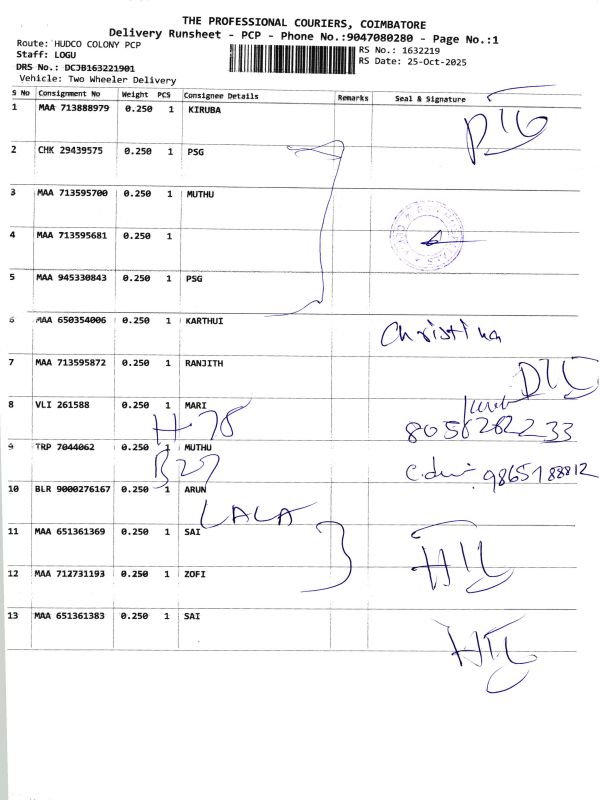 THE PROFESSIONAL COURIERS, COIMBATORE
Delivery Runsheet - PCP - Phone No.:9047080280 - Page No.:1
Route: HUDCO COLONY PCP RS No.: 1632219
Staff: LOGU RS Date: 25-Oct-2025
DRS No.: DCJB163221901
Vehicle: Two Wheeler Delivery
S No Consignment No Weight PCS Consignee Details Remarks Seal & Signature
1 MAA 713888979 0.250 1 KIRUBA
2 CHK 29439575 0.250 1 PSG
3 MAA 713595700 0.250 1 MUTHU
4 MAA 713595681 0.250 1
5 MAA 945330843 0.250 1 PSG
6 MAA 650354006 0.250 1 KARTHUI Christina
7 MAA 713595872 0.250 1 RANJITH
8 VLI 261588 0.250 1 MARI
H-78 8056282233
9 TRP 7044062 0.250 1 MUTHU
B27 9865188812
10 BLR 9000276167 0.250 1 ARUN
LALA
11 MAA 651361369 0.250 1 SAI
12 MAA 712731193 0.250 1 ZOFI
13 MAA 651361383 0.250 1 SAI